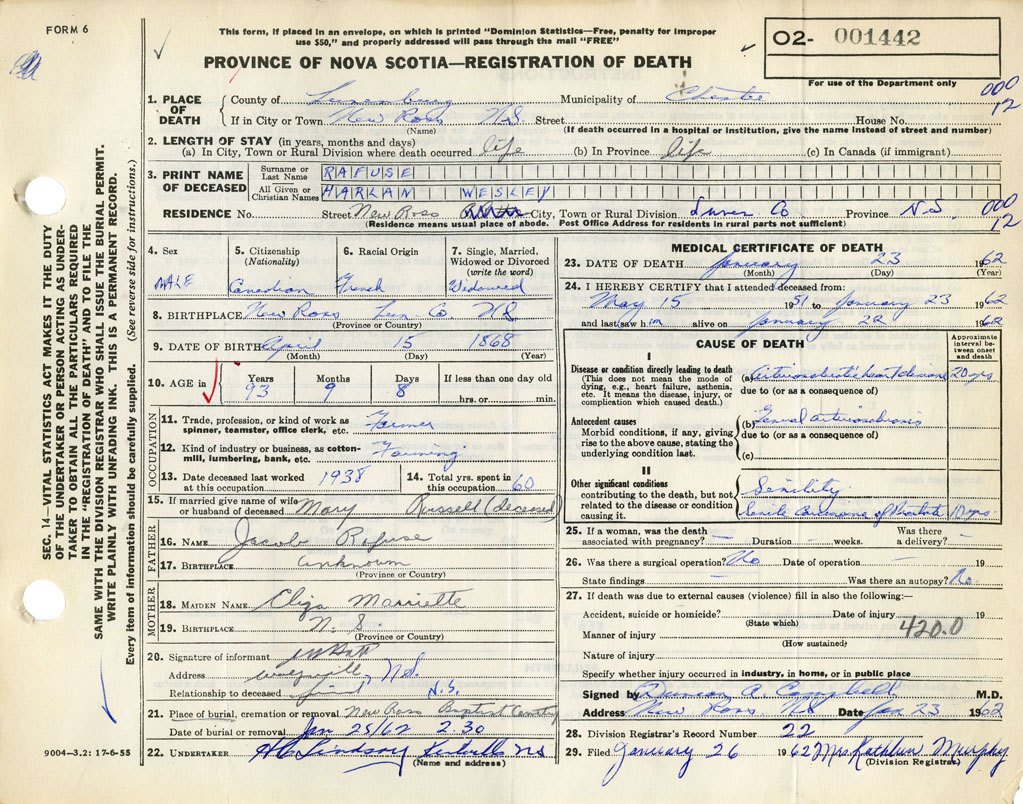 FORM 6
This form, if placed in an envelope, on which is printed "Dominion Statistics—Free, penalty for improper
use $50," and properly addressed will pass through the mail "FREE"
PROVINCE OF NOVA SCOTIA—REGISTRATION OF DEATH
02- 001442
For use of the Department only
000
12
1. PLACE OF DEATH County of Lunenburg Municipality of Chester
If in City or Town New Ross N.S. Street House No.
(Name) (If death occurred in a hospital or institution, give the name instead of street and number)
2. LENGTH OF STAY (in years, months and days)
(a) In City, Town or Rural Division where death occurred life (b) In Province life (c) In Canada (if immigrant)
3. PRINT NAME OF DECEASED Surname or Last Name RAFUSE
All Given or Christian Names HARLAM WESLEY
RESIDENCE No. Street New Ross City, Town or Rural Division Lunen Co Province N.S.
(Residence means usual place of abode. Post Office Address for residents in rural parts not sufficient)
000
12
4. Sex MALE
5. Citizenship (Nationality) Canadian
6. Racial Origin French
7. Single, Married, Widowed or Divorced (write the word) Widowed
8. BIRTHPLACE New Ross Lun. Co. NS
(Province or Country)
9. DATE OF BIRTH April 15 1868
(Month) (Day) (Year)
10. AGE in Years Months Days If less than one day old
93 9 8 hrs. or min.
OCCUPATION
11. Trade, profession, or kind of work as spinner, teamster, office clerk, etc. Farmer
12. Kind of industry or business, as cotton-mill, lumbering, bank, etc. Farming
13. Date deceased last worked at this occupation 1938
14. Total yrs. spent in this occupation 60
15. If married give name of wife or husband of deceased Mary Russell (deceased)
FATHER
16. NAME Jacob Rafuse
17. BIRTHPLACE unknown
(Province or Country)
MOTHER
18. MAIDEN NAME Eliza Marriette
19. BIRTHPLACE N.S.
(Province or Country)
20. Signature of informant
Address N.S.
Relationship to deceased N.S.
21. Place of burial, cremation or removal New Ross Baptist Cemetery
Date of burial or removal Jan 25/62 2.30
22. UNDERTAKER H C Lindsay NS
(Name and address)
MEDICAL CERTIFICATE OF DEATH
23. DATE OF DEATH January 23 1962
(Month) (Day) (Year)
24. I HEREBY CERTIFY that I attended deceased from:
May 15 1951 to January 23 1962
and last saw him alive on January 22 1962
CAUSE OF DEATH
Approximate interval between onset and death
I
Disease or condition directly leading to death
(This does not mean the mode of dying, e.g., heart failure, asthenia, etc. It means the disease, injury, or complication which caused death.)
(a) Arteriosclerotic heart disease 20 yrs
due to (or as a consequence of)
Antecedent causes
Morbid conditions, if any, giving rise to the above cause, stating the underlying condition last.
(b) General arteriosclerosis
due to (or as a consequence of)
(c)
II
Other significant conditions
contributing to the death, but not related to the disease or condition causing it.
Senility
Senile Carcinoma of Prostate 10 yrs.
25. If a woman, was the death associated with pregnancy? — Duration — weeks. Was there a delivery? —
26. Was there a surgical operation? No Date of operation — 19
State findings — Was there an autopsy? No.
27. If death was due to external causes (violence) fill in also the following:—
Accident, suicide or homicide? Date of injury 19
(State which)
Manner of injury 420.0
(How sustained)
Nature of injury
Specify whether injury occurred in industry, in home, or in public place
Signed by Duncan A. Campbell M.D.
Address New Ross NS Date Jan 23 1962
28. Division Registrar's Record Number 22
29. Filed January 26 1962 Mrs Kathleen Murphy
(Division Registrar)
SEC. 14—VITAL STATISTICS ACT MAKES IT THE DUTY
OF THE UNDERTAKER OR PERSON ACTING AS UNDER-
TAKER TO OBTAIN ALL THE PARTICULARS REQUIRED
IN THE "REGISTRATION OF DEATH" AND TO FILE THE
SAME WITH THE DIVISION REGISTRAR WHO SHALL ISSUE THE BURIAL PERMIT.
WRITE PLAINLY WITH UNFADING INK. THIS IS A PERMANENT RECORD.
Every item of information should be carefully supplied. (See reverse side for instructions.)
9004—3.2: 17-6-55